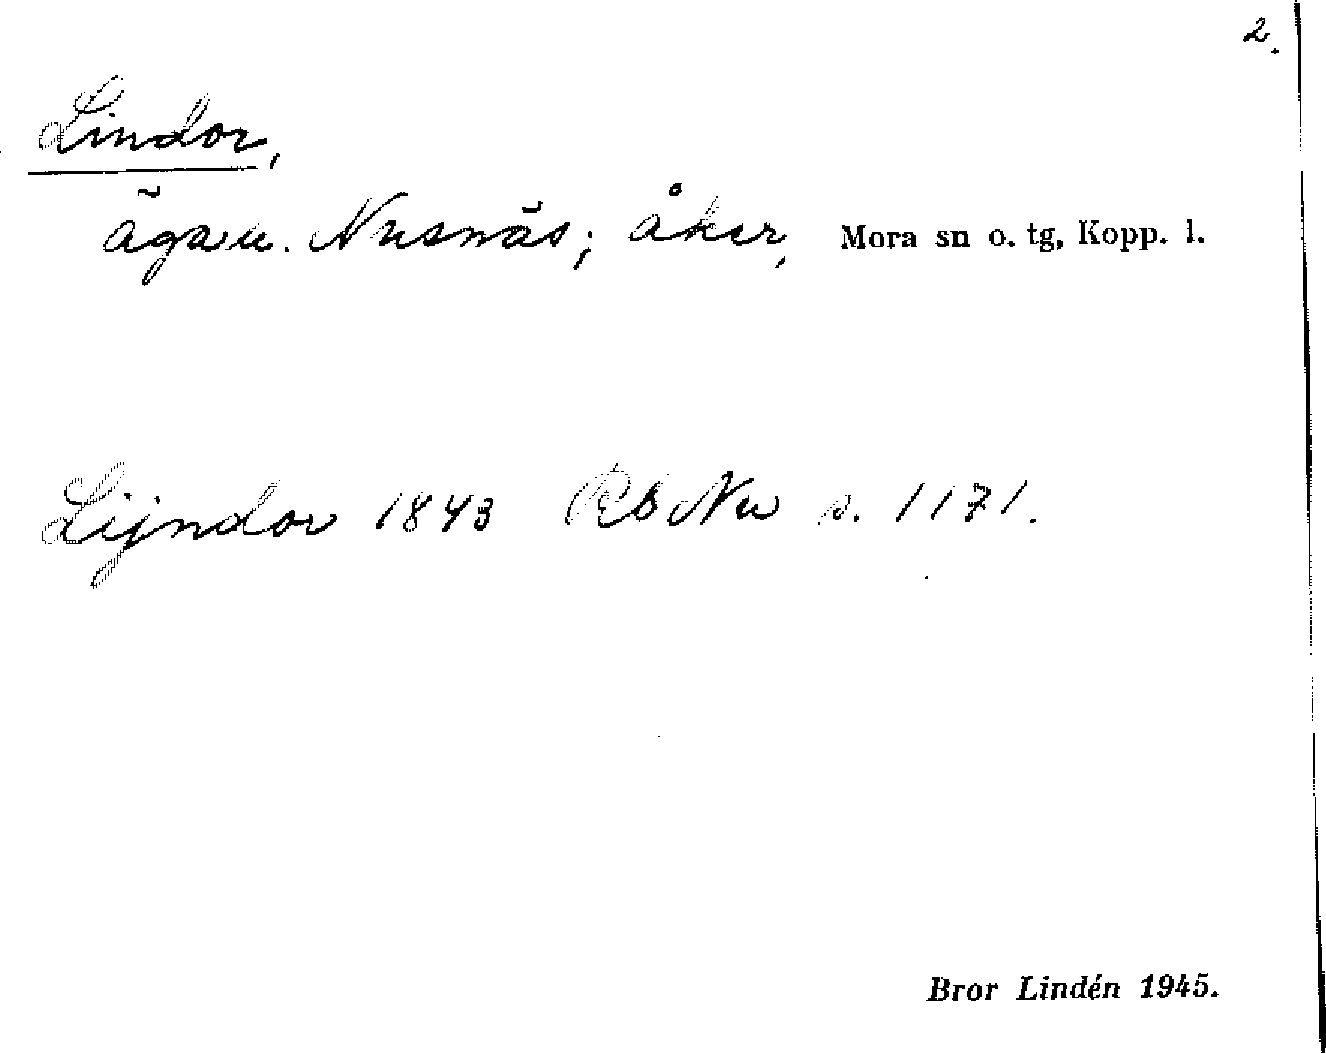 2.
Lindor,
äga u. Nusnäs; åker, Mora sn o. tg, Kopp. l.
Lijndor 1843 Rb Nu s. 1171.
Bror Lindén 1945.